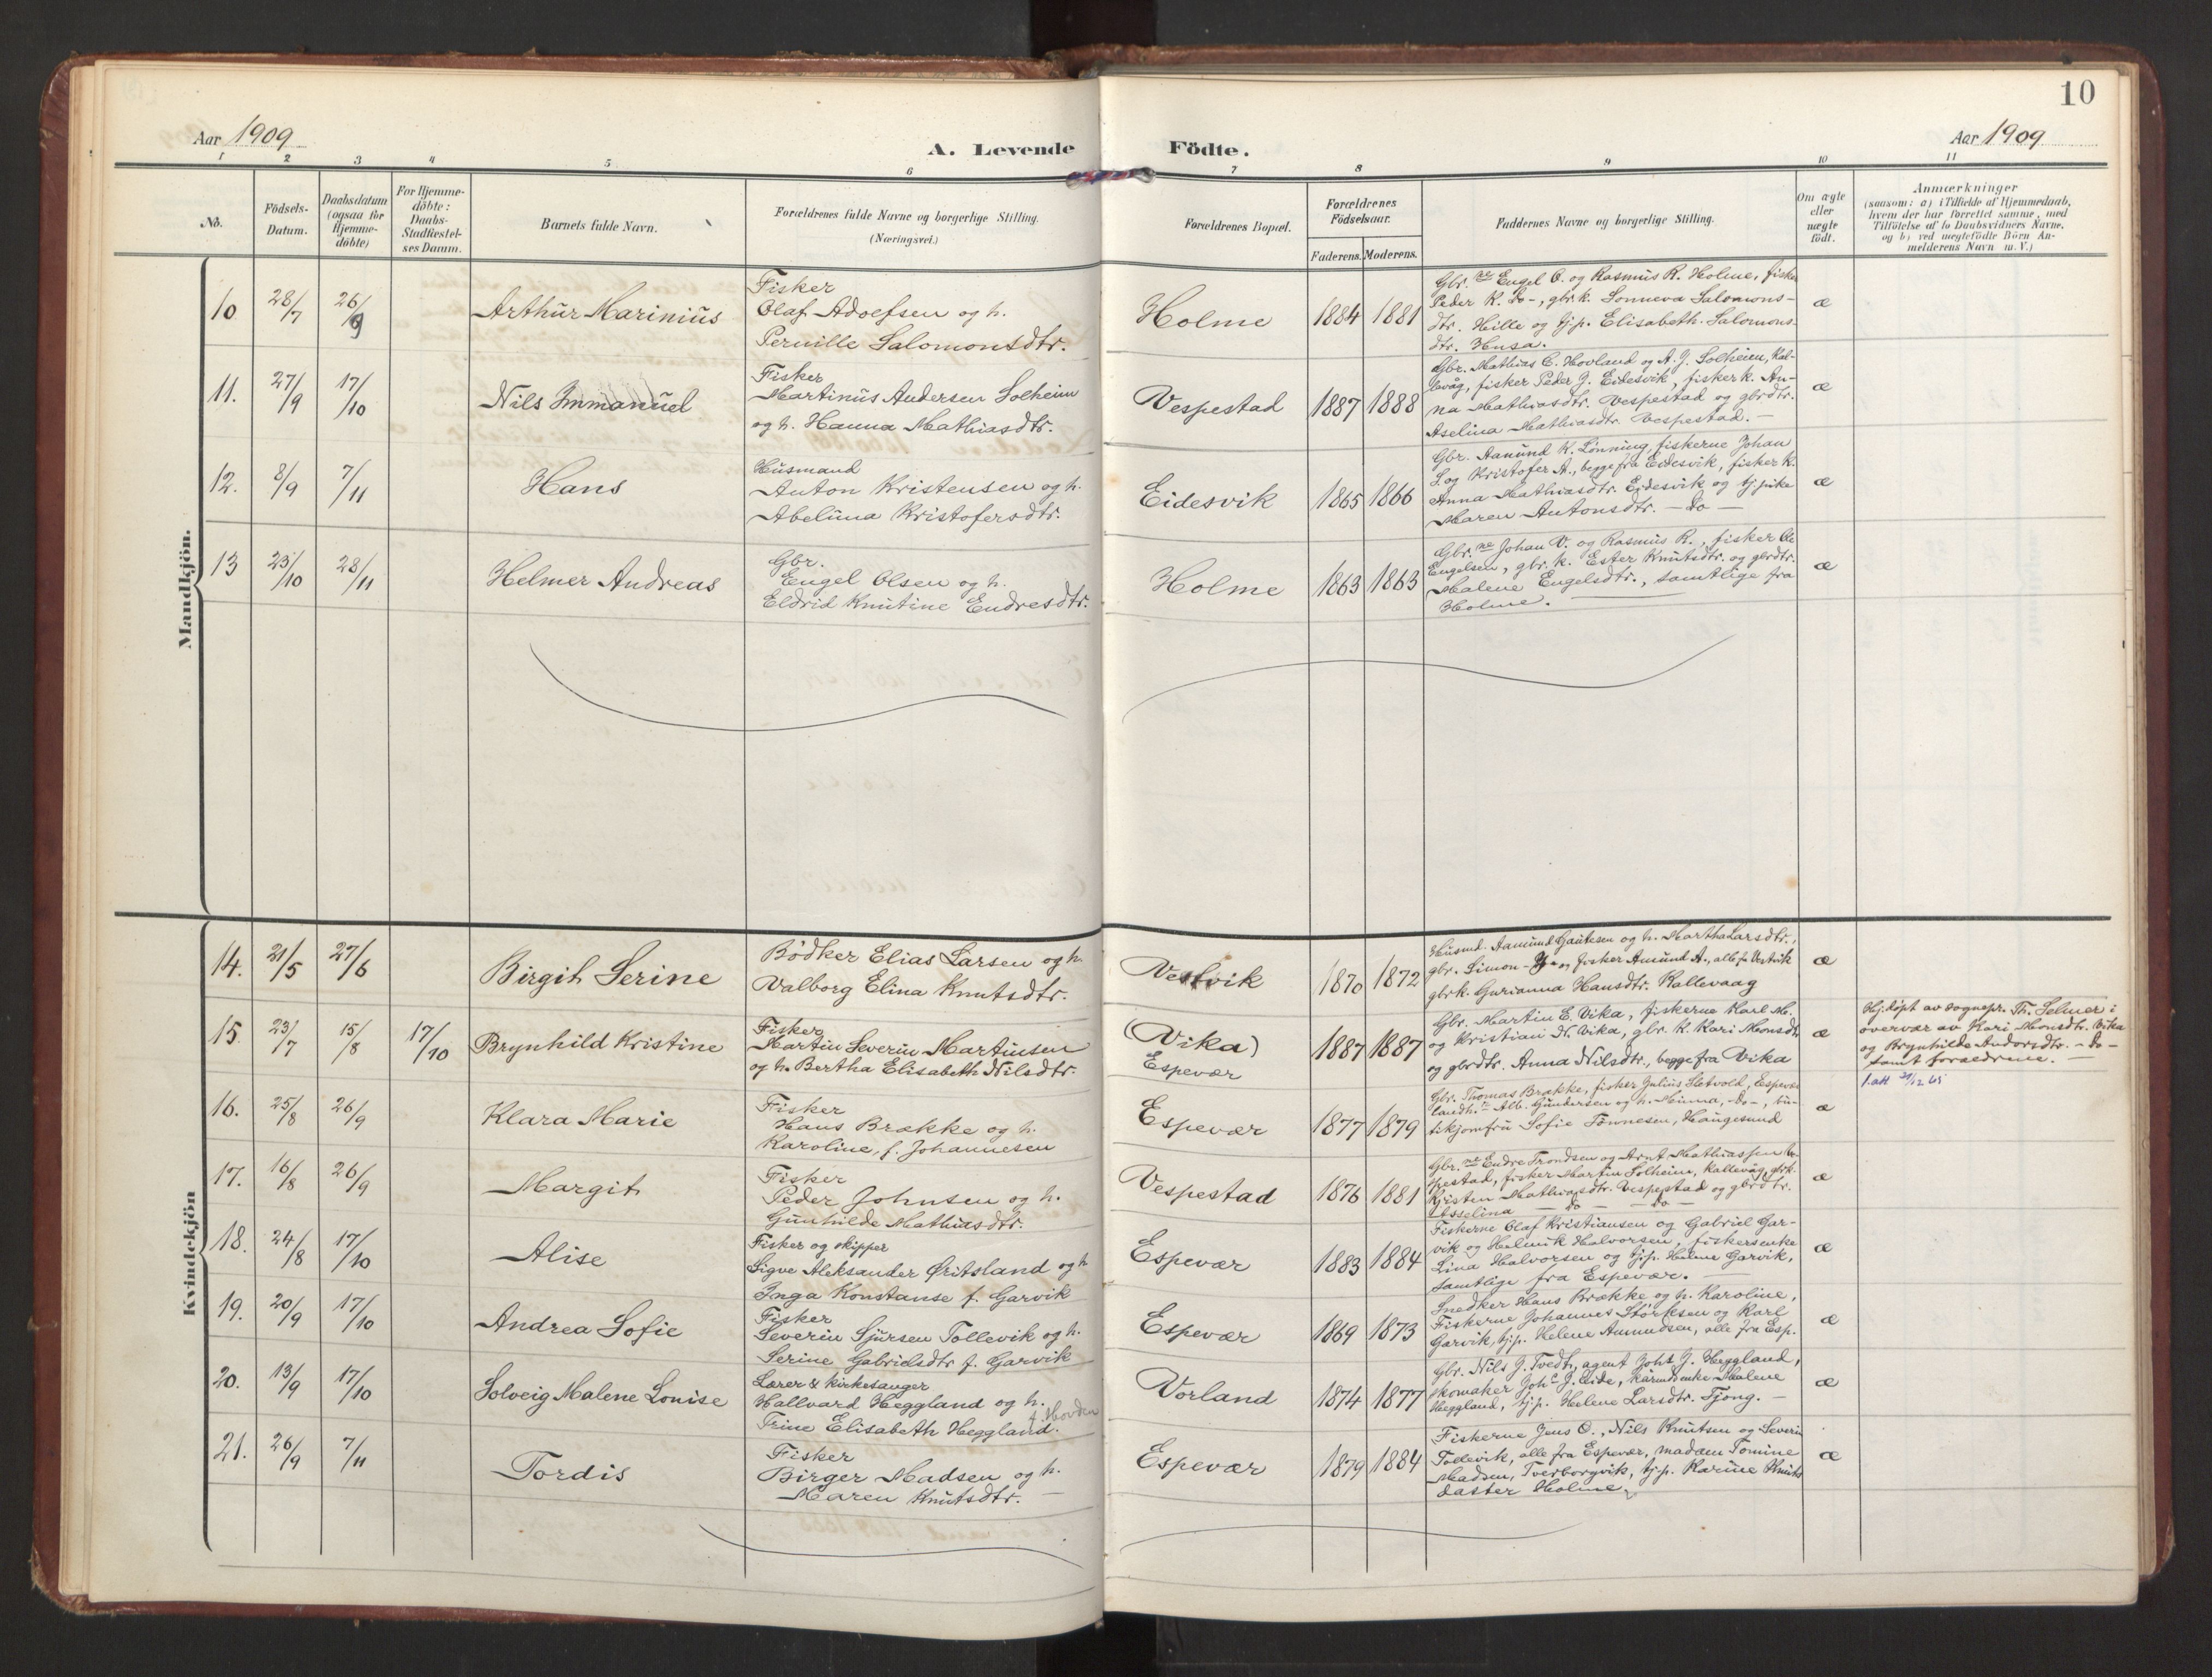 10
Aar 1909
A. Levende Födte.
Aar 1909
1 2 3 4 5 6 7 8 9 10 11
No.
Födsels-Datum.
Daabsdatum (ogsaa for Hjemme-döbte)
For Hjemme-döbte: Daabs-Stadfæstel-ses Datum.
Barnets fulde Navn.
Forældrenes fulde Navne og borgerlige Stilling.
(Næringsvei.)
Forældrenes Bopæl.
Forældrenes Födselsaar.
Faderens. Moderens.
Faddernes Navne og borgerlige Stilling.
Om ægte eller uægte født.
Anmærkninger
(saasom: a) i Tilfælde af Hjemmedaab,
hvem der har forrettet samme, med
Tilföielse af to Daabsvidners Navne,
og b) ved uægtefödte Börn An-
melderens Navn m. V.)
Mandkjön.
10 28/7 26/9 Arthur Marinius
Fisker
Olaf Adolfsen og h.
Pernille Salomonsdtr.
Holme 1884 1881
Gbr.ne Engel O. og Rasmus R. Holme, fisker
Peder K. do-, gbr.k. Sonneva Salomons-
dtr. Hille og tj.p. Elisabeth Salomons-
dtr. Husa.
æ
11. 27/9 17/10 Nils Immanuel
Fisker
Martinus Andersen Solheim
og h. Hanna Mathiasdtr.
Vespestad 1887 1888
Gbr. Mathias C. Hovland og A. J. Solheim, Kal-
levåg, fisker Peder J. Eidesvik, fisker k. An-
na Mathiasdtr. Vespestad og gbrdtr.
Aselina Mathiasdtr. Vespestad. —
æ
12. 8/9 7/11 Hans
Husmand
Anton Kristensen og h.
Abelina Kristofersdtr.
Eidesvik 1865 1866
Gbr. Aamund K. Lønning, fiskerne Johan
L. og Kristofer A., begge fra Eidesvik, fisker k.
Anna Mathiasdtr. Eidesvik og tj.pike
Maren Antonsdtr. — do —
æ
13 23/10 28/11 Helmer Andreas
Gbr.
Engel Olsen og h.
Eldrid Knutine Endresdtr.
Holme 1863 1863
Gbr.ne Johan V. og Rasmus R., fisker Ole
Engelsen, gbr. k. Ester Knutsdtr. og gbrdtr.
Malene Engelsdtr., samtlige fra
Holme.
æ
Kvindekjön
14. 21/5 27/6 Birgit Serine
Bödker Elias Larsen og h.
Valborg Elina Knutsdtr.
Vestvik 1870 1872
Husmd. Aamund Gautesen og h. Martha Larsdtr.,
gbr. Simon fisker Amund A., alle fr Vestvik
gbrk. Gurianna Hansdtr. Kallevaag
æ
15. 23/7 15/8 17/10 Brynhild Kristine
Fisker
Martin Severin Martinsen
og h. Bertha Elisabeth Nilsdtr.
(Vika)
Espevær 1887 1887
Gbr. Martin E. Vika, fiskerne Karl M.
og Kristian N. Vika, gbr. k. Kari Monsdtr
og gbrdtr. Anna Nilsdtr., begge fra Vika
æ
Hj.døpt av sognepr. Th. Selmer i
overvær av Kari Monsdtr. Vika
og Brynhilde Andorsdtr. - do -
samt forældrene. —
f.att 21/12 65
16. 25/8 26/9 Klara Marie
Fisker
Hans Brække og h.
Karoline, f. Johannesen
Espevær 1877 1879
Gbr. Thomas Brække, fisker Julius Sletvold, Espevær
landh. Alb. Gundersen og h. Minna, - do -, bu-
tikjomfru Sofie Tønnesen, Haugesund
æ
17. 16/8 26/9 Margit
Fisker
Peder Johnsen og h.
Gunhilde Mathiasdtr.
Vespestad 1876 1881
Gbr.ne Endre Trondsen og Arnt Mathiassen Ve-
spestad, fisker Martin Solheim, Kallevåg, gbrk.
Kristen Mathiasdtr. Vespestad og gbrdtr.
Asselina — do — — do —
æ
18. 24/8 17/10 Alise
Fisker og skipper
Sigve Aleksander Øritsland og h
Inga Konstanse f. Garvik
Espevær 1883 1884
Fiskerne Olaf Kristiansen og Gabriel Gar-
vik og Helmik Halvorsen, fiskerenke
Lina Halvorsen og tj.p. Helene Garvik,
samtlige fra Espevær. —
æ
19. 20/9 17/10 Andrea Sofie
Fisker
Severin Sjursen Tollevik og h.
Serine Gabrielsdtr f. Garvik
Espevær 1869 1873
Snedker Hans Brække og h. Karoline,
Fiskerne Johannes Størksen og Karl
Garvik, tj.p. Helene Amundsen, alle fra Esp.
æ
20. 13/9 17/10 Solveig Malene Lonise
Lærer & kirkesanger
Hallvard Heggland og h.
Trine Elisabeth Heggland. f. Hovden
Vorland 1874 1877
Gbr. Nils J. Tvedt, agent Johs J. Heggland,
skomaker Johs J. Eide, kårmdenke Malene
Heggland, tj.p. Helene Larsdtr. Tjong. —
æ
21. 26/9 7/11 Tordis
Fisker
Birger Madsen og h.
Maren Knutsdtr. —
Espevær 1879 1884
Fiskerne Jens O., Nils Knutsen og Severin
Tollevik, alle fra Espevær, madam Tomine
Madsen, Tverborgvik, tj.p. Karine Knuts
datter Holme.
æ